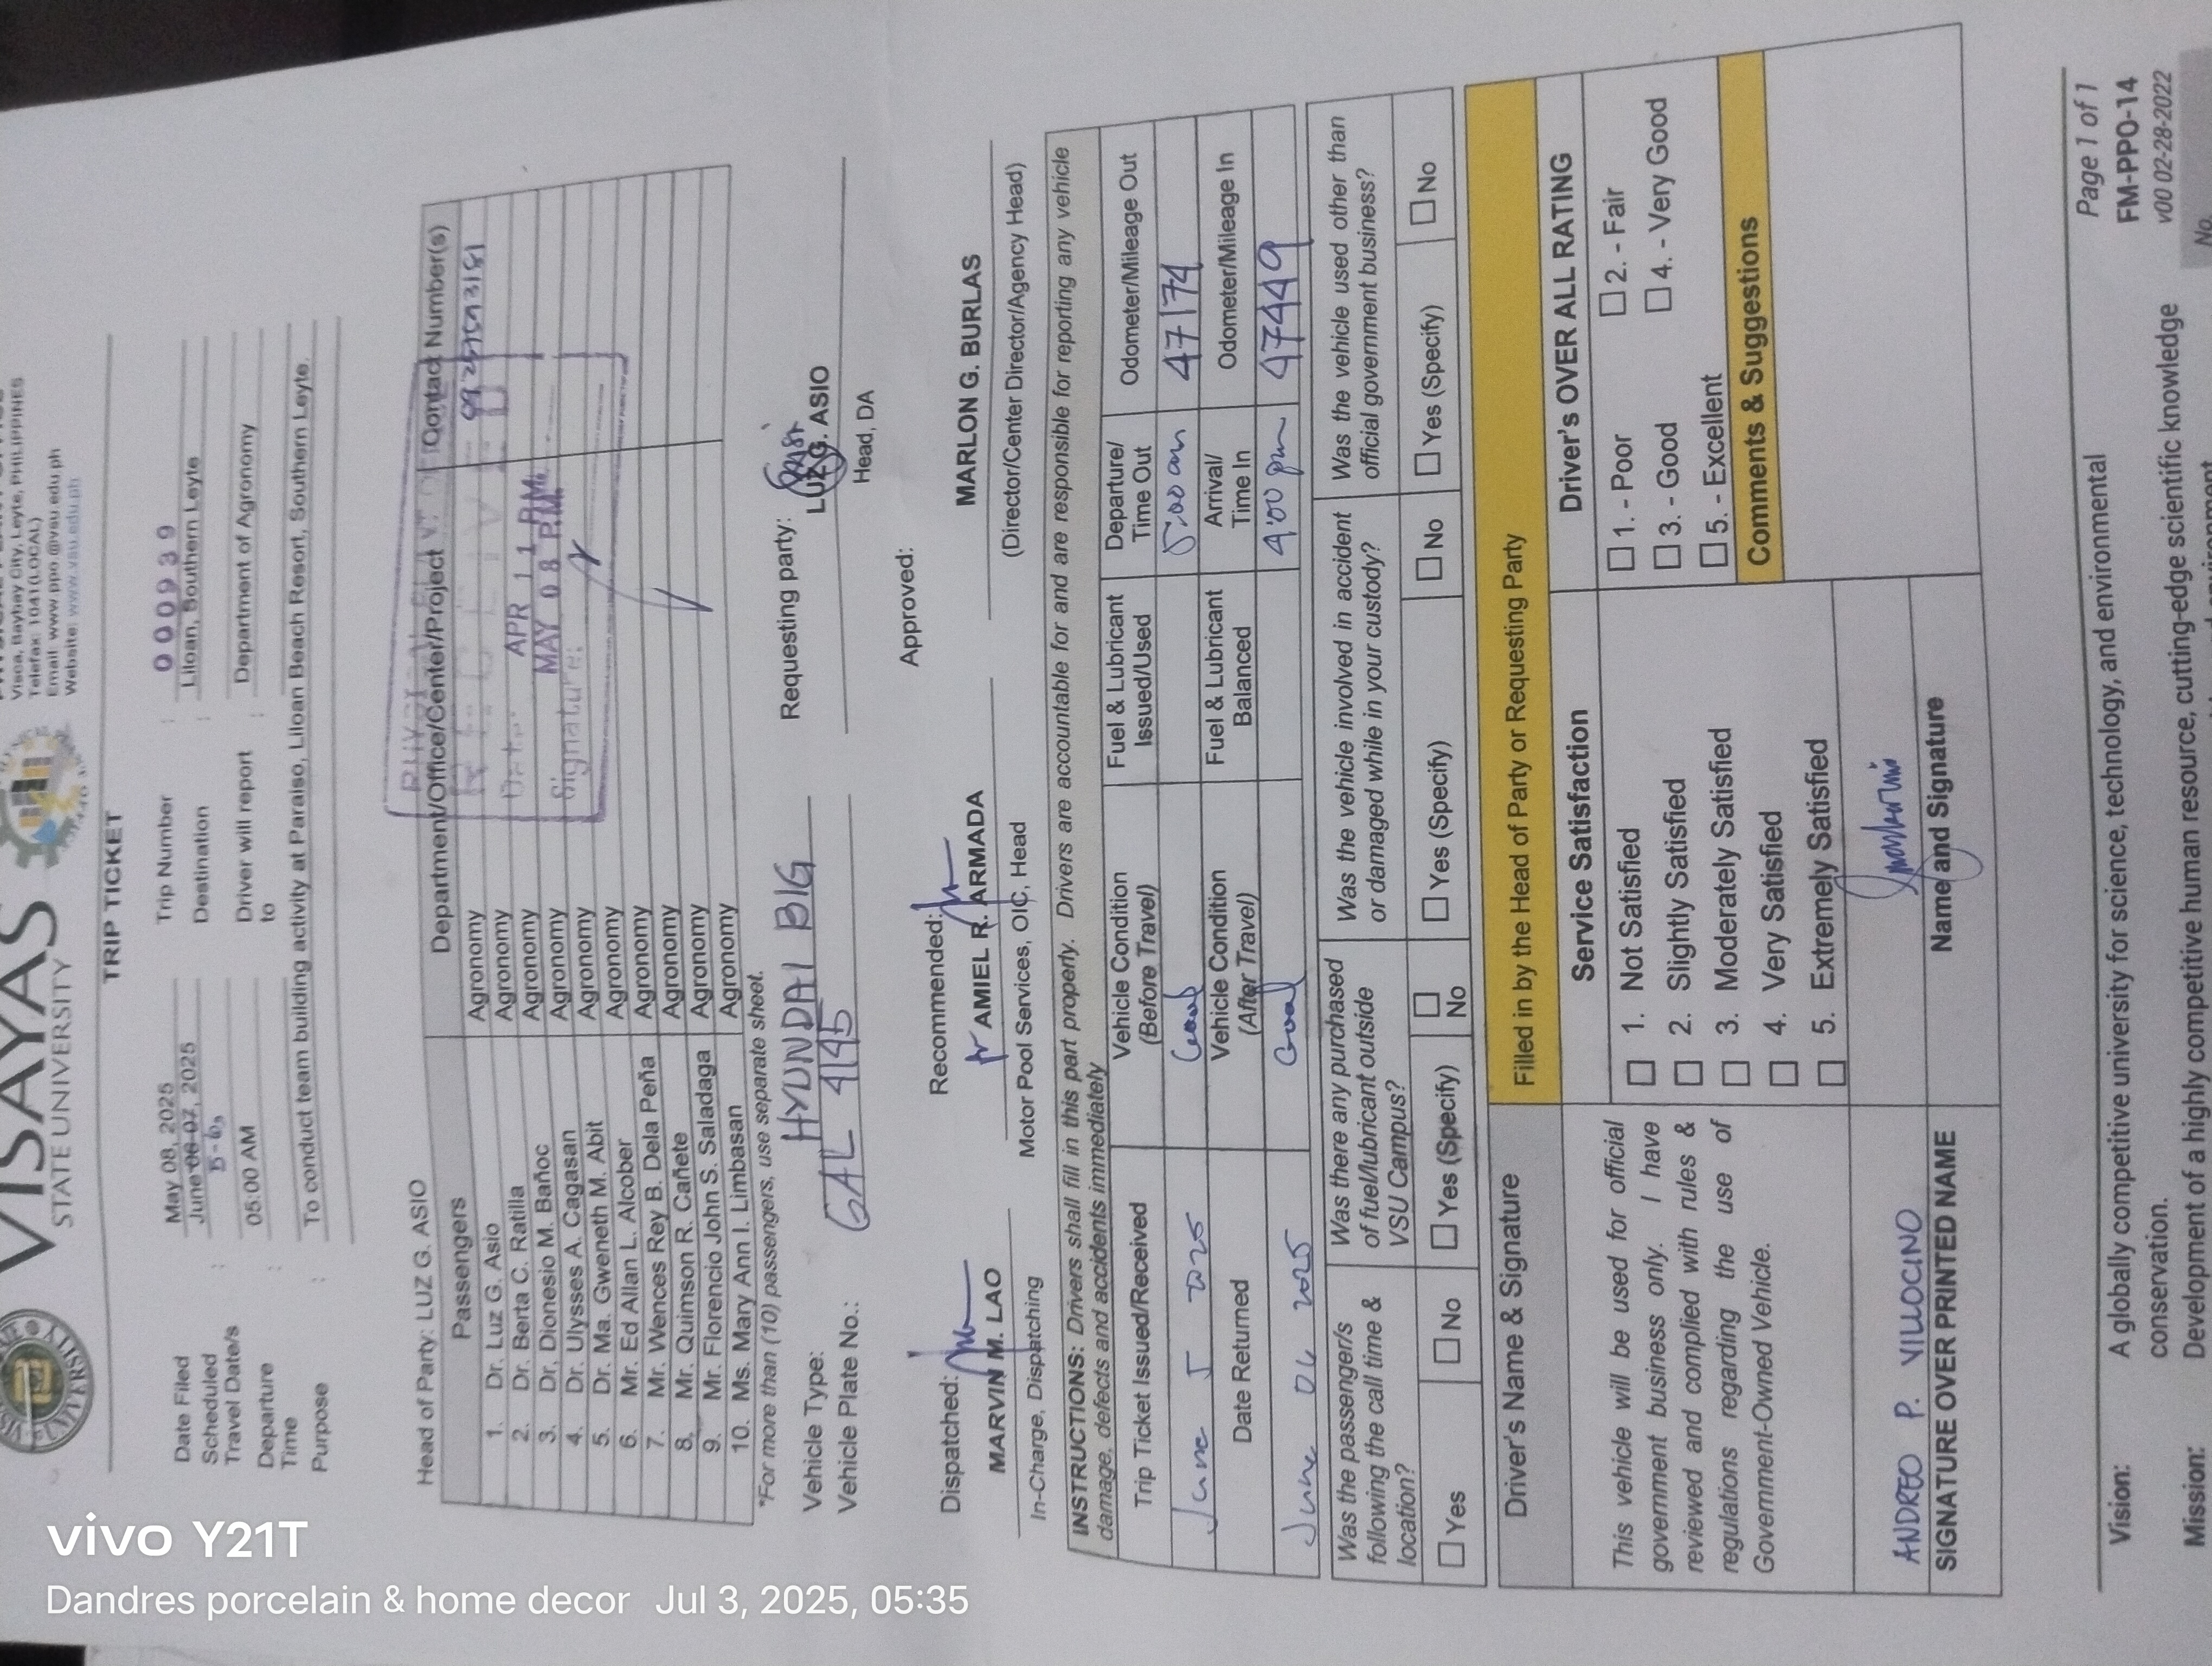 VISAYAS
STATE UNIVERSITY
Visca, Baybay City, Leyte, PHILIPPINES
Telefax: 1041 (LOCAL)
Email: www.ppo@vsu.edu.ph
Website: www.vsu.edu.ph
TRIP TICKET
Date Filed : May 08, 2025
Trip Number : 000939
Scheduled Travel Date/s : June 06-07, 2025
Destination : Liloan, Southern Leyte
Departure Time : 05:00 AM
Driver will report to : Department of Agronomy
Purpose : To conduct team building activity at Paraiso, Liloan Beach Resort, Southern Leyte.
Head of Party: LUZ G. ASIO
Passengers Department/Office/Center/Project Contact Number(s)
1. Dr. Luz G. Asio Agronomy
2. Dr. Berta C. Ratilla Agronomy
3. Dr. Dionesio M. Bañoc Agronomy
4. Dr. Ulysses A. Cagasan Agronomy
5. Dr. Ma. Gweneth M. Abit Agronomy
6. Mr. Ed Allan L. Alcober Agronomy
7. Mr. Wences Rey B. Dela Peña Agronomy
8. Mr. Quimson R. Cañete Agronomy
9. Mr. Florencio John S. Saladaga Agronomy
10. Ms. Mary Ann I. Limbasan Agronomy
APR 11 P.M.
MAY 08 P.M.
Signature:
*For more than (10) passengers, use separate sheet.
Vehicle Type: HYUNDAI BIG
Vehicle Plate No.: GAL 4195
Requesting party:
LUZ G. ASIO
Head, DA
Dispatched:
MARVIN M. LAO
In-Charge, Dispatching
Recommended:
AMIEL R. ARMADA
Motor Pool Services, OIC, Head
Approved:
MARLON G. BURLAS
(Director/Center Director/Agency Head)
INSTRUCTIONS: Drivers shall fill in this part properly. Drivers are accountable for and are responsible for reporting any vehicle
damage, defects and accidents immediately
Trip Ticket Issued/Received Vehicle Condition (Before Travel) Fuel & Lubricant Issued/Used Departure/ Time Out Odometer/Mileage Out
June 5 2025 Good 5:00 am 47174
Date Returned Vehicle Condition (After Travel) Fuel & Lubricant Balanced Arrival/ Time In Odometer/Mileage In
June 06 2025 Good 4:00 pm 47449
Was the passenger/s following the call time & location?
Was there any purchased of fuel/lubricant outside VSU Campus?
Was the vehicle involved in accident or damaged while in your custody?
Was the vehicle used other than official government business?
Yes No Yes (Specify) No Yes (Specify) No Yes (Specify) No
Driver's Name & Signature
This vehicle will be used for official
government business only. I have
reviewed and complied with rules &
regulations regarding the use of
Government-Owned Vehicle.
ANDREO P. VILLOCINO
SIGNATURE OVER PRINTED NAME
Filled in by the Head of Party or Requesting Party
Service Satisfaction
1. Not Satisfied
2. Slightly Satisfied
3. Moderately Satisfied
4. Very Satisfied
5. Extremely Satisfied
Name and Signature
Driver's OVER ALL RATING
1. - Poor 2. - Fair
3. - Good 4. - Very Good
5. - Excellent
Comments & Suggestions
Page 1 of 1
FM-PPO-14
v00 02-28-2022
No.
Vision: A globally competitive university for science, technology, and environmental
conservation.
Mission: Development of a highly competitive human resource, cutting-edge scientific knowledge
vivo Y21T
Dandres porcelain & home decor Jul 3, 2025, 05:35